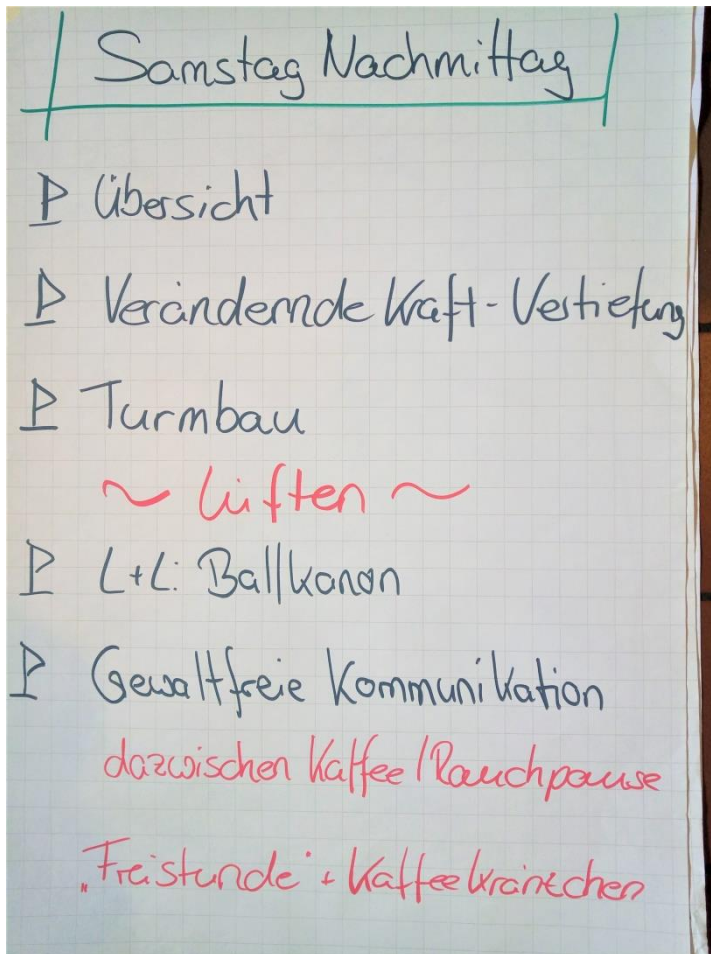 Samstag Nachmittag
Übersicht
Verändernde Kraft - Vertiefung
Turmbau
~ Lüften ~
L+L: Ballkanon
Gewaltfreie Kommunikation
dazwischen Kaffee/Rauchpause
„Freistunde" + Kaffeekräntchen